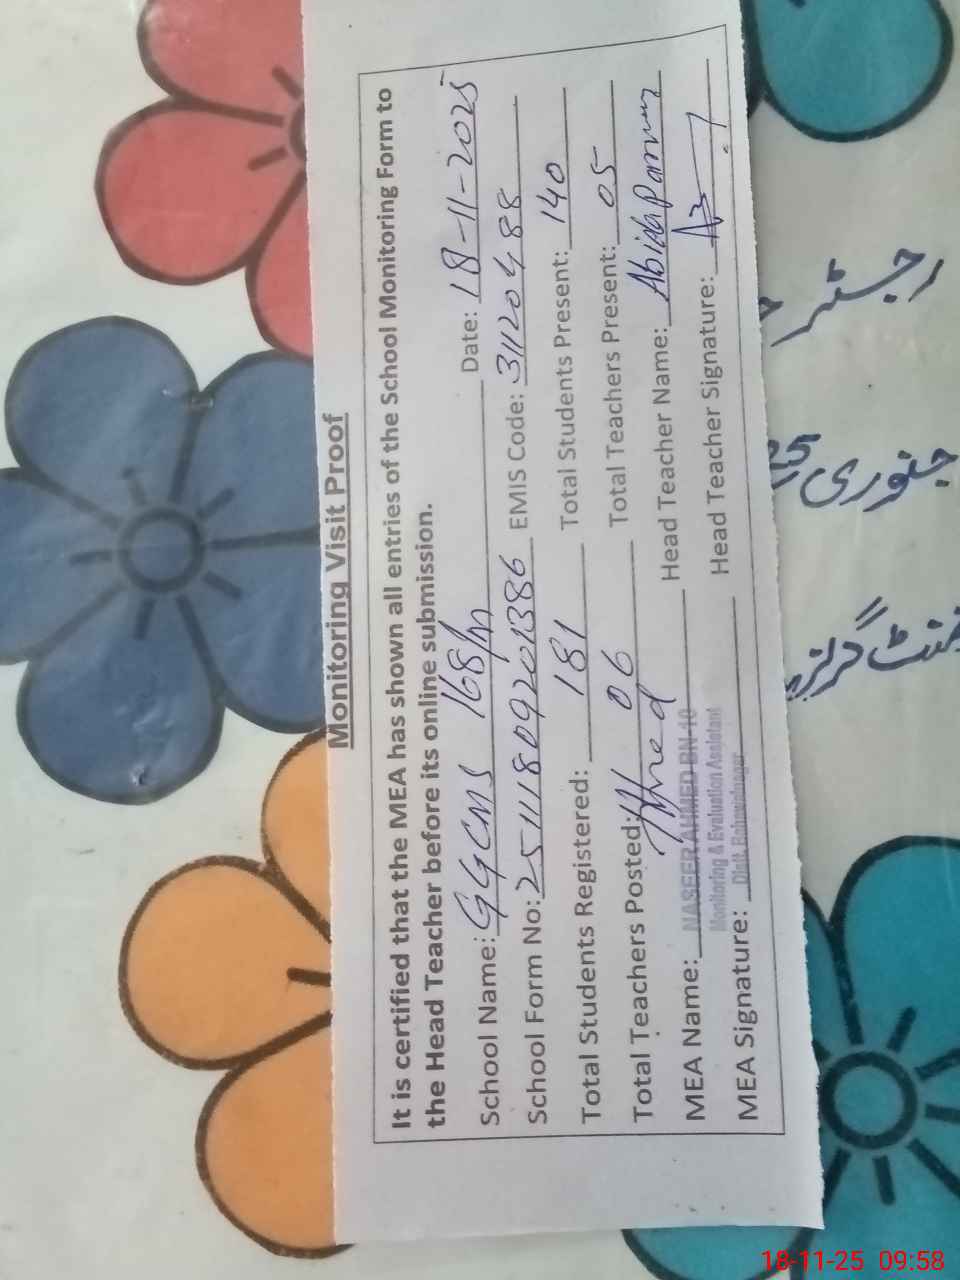 Monitoring Visit Proof
It is certified that the MEA has shown all entries of the School Monitoring Form to
the Head Teacher before its online submission.
School Name: GGCMS 168/m Date: 18-11-2025
School Form No: 25111809201386 EMIS Code: 31120488
Total Students Registered: 181 Total Students Present: 140
Total Teachers Posted: 06 Total Teachers Present: 05
MEA Name: NASEER AHMED BN-10 Head Teacher Name: Abida Parveen
Monitoring & Evaluation Assistant
MEA Signature: Distt. Bahawalnagar Head Teacher Signature:
رجسٹر
جنوری 25
گرلز
18-11-25 09:58